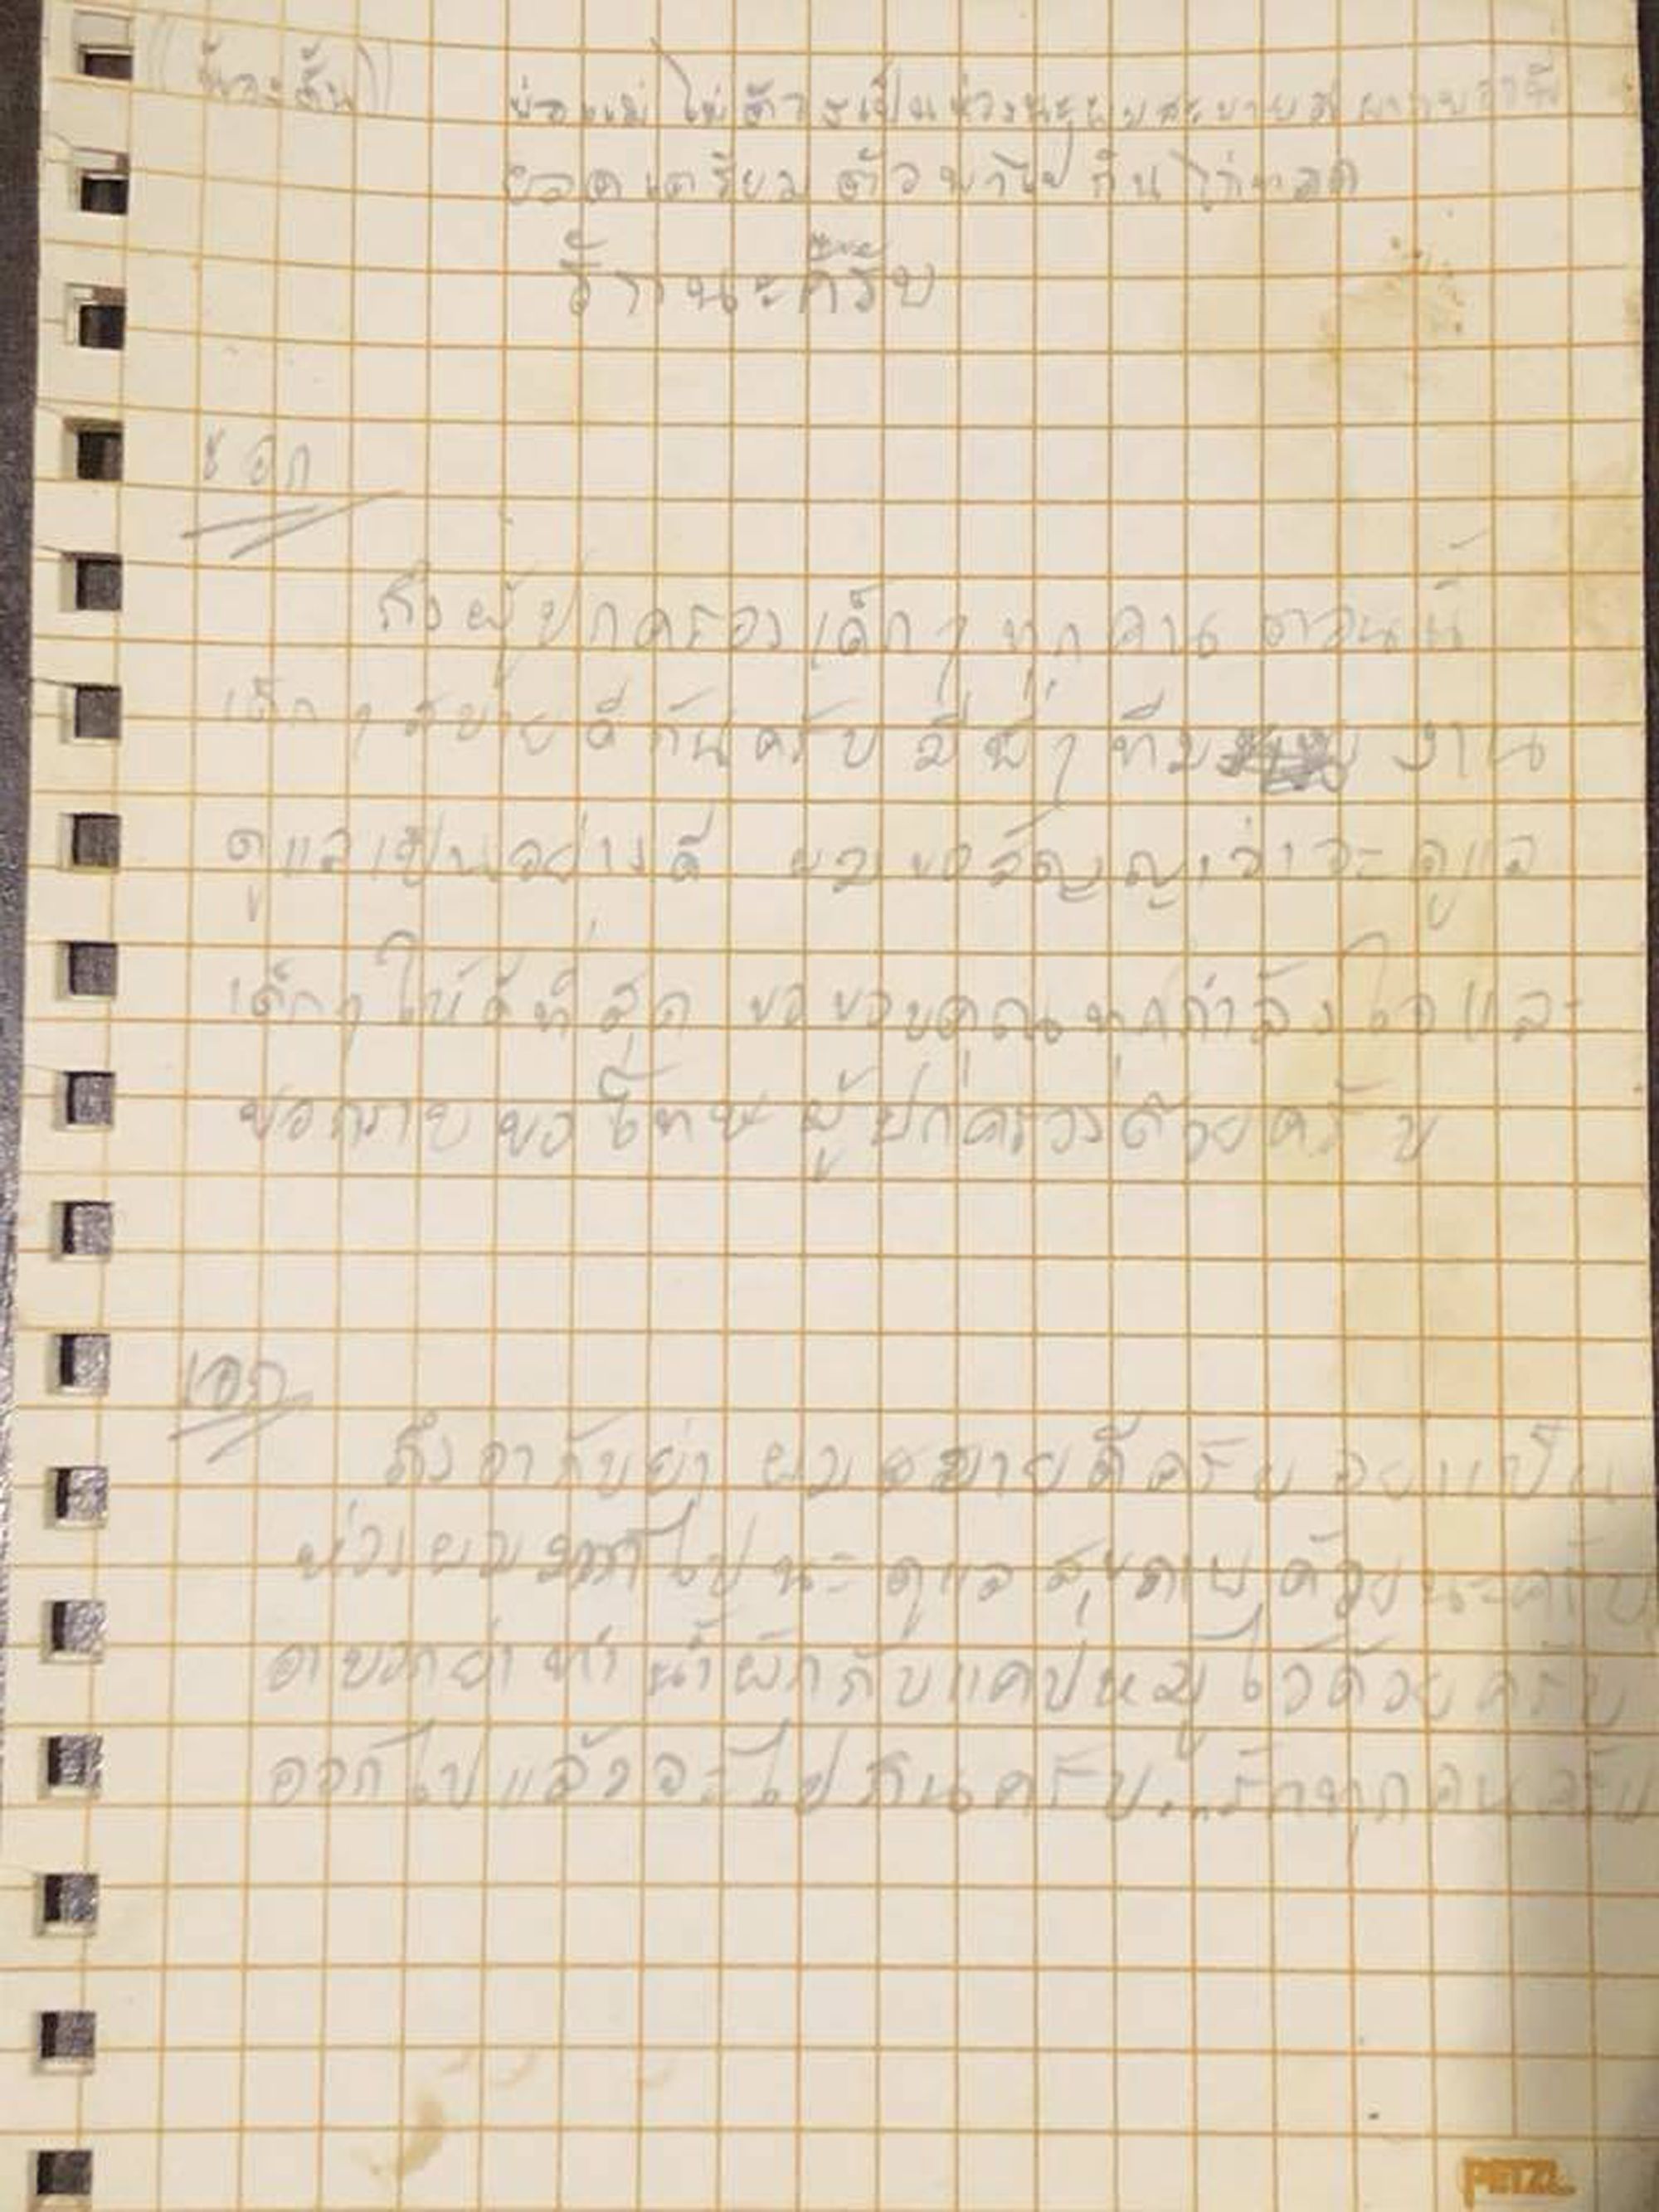 พ่อแม่ ไม่ต้องเป็นห่วงนะผมสบายดี
ยอดเตรียมตัวพาไปกินไก่ทอด
ด้วยนะครับ
เอก
ถึงผู้ปกครองเด็กๆ ทุกคน ตอนนี้
เด็กๆ สบายดีกันครับ มีพี่ๆ ทีม งาน
ดูแลเป็นอย่างดี ผมขอสัญญาว่าจะดูแล
เด็กๆ ให้ดีที่สุด ขอขอบคุณทุกกำลังใจและ
ขอกราบขอโทษผู้ปกครองด้วยครับ
เอก
ถึงอากับย่า ผมสบายดีครับ อย่าเป็น
ห่วงผมมากไปนะ ดูแลสุขภาพด้วยนะครับ
อาบอกย่าทำน้ำผักกับแคปหมูไว้ด้วยครับ
ออกไปแล้วจะไปกินครับ...รักทุกคนครับ
PETZL